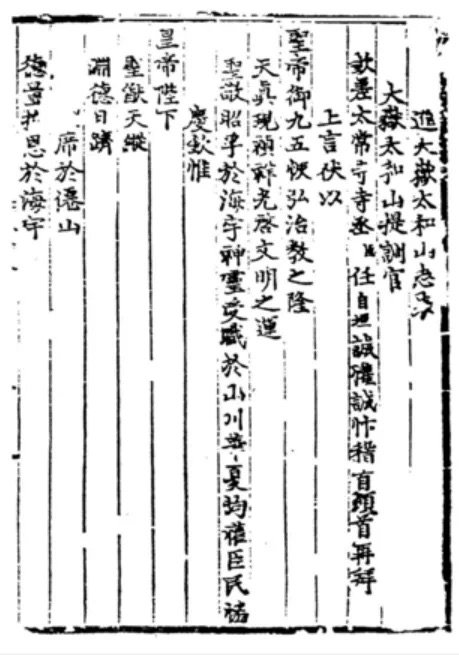 進大嶽太和山志表
大嶽太和山提調官
欽差太常寺寺丞臣任自垣誠懽誠忭稽首頓首再拜
上言伏以
聖帝御九五便弘治教之隆
天真現禎祥光啓文明之運
聖敬昭孚於海宇神靈受職於山川華夏均禧臣民協
慶欽惟
皇帝陛下
聖猷天縱
淵德日躋
席於僊山
德量推恩於海宇